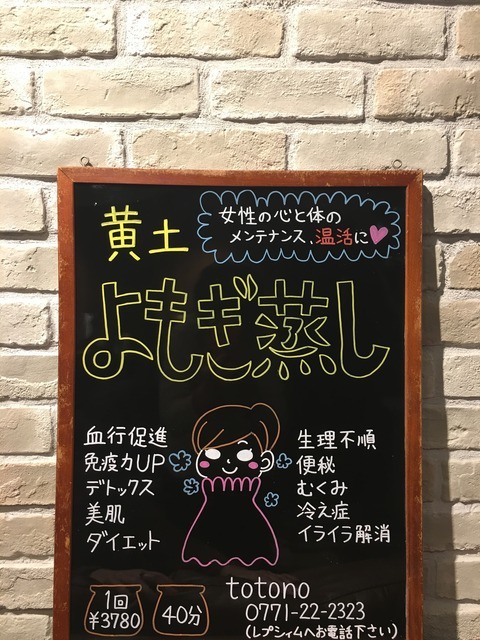 女性の心と体の
メンテナンス、温活に
黄土
よもぎ蒸し
血行促進
免疫力UP
デトックス
美肌
ダイエット
生理不順
便秘
むくみ
冷え症
イライラ解消
1回
¥3780
40分
totono
0771-22-2323
(レプシィムへお電話下さい)